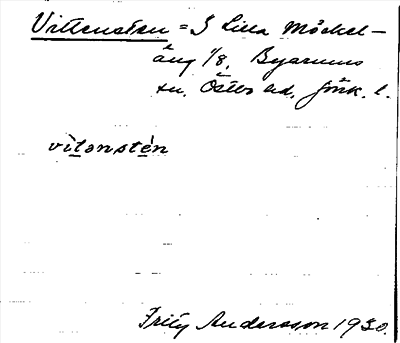 Vittensten = I Lilla Måckel-
äng 1/8, Byarums
sn. Östbo hd. Jönk. l.
vìtənstén
Fritz Andersson 1930.